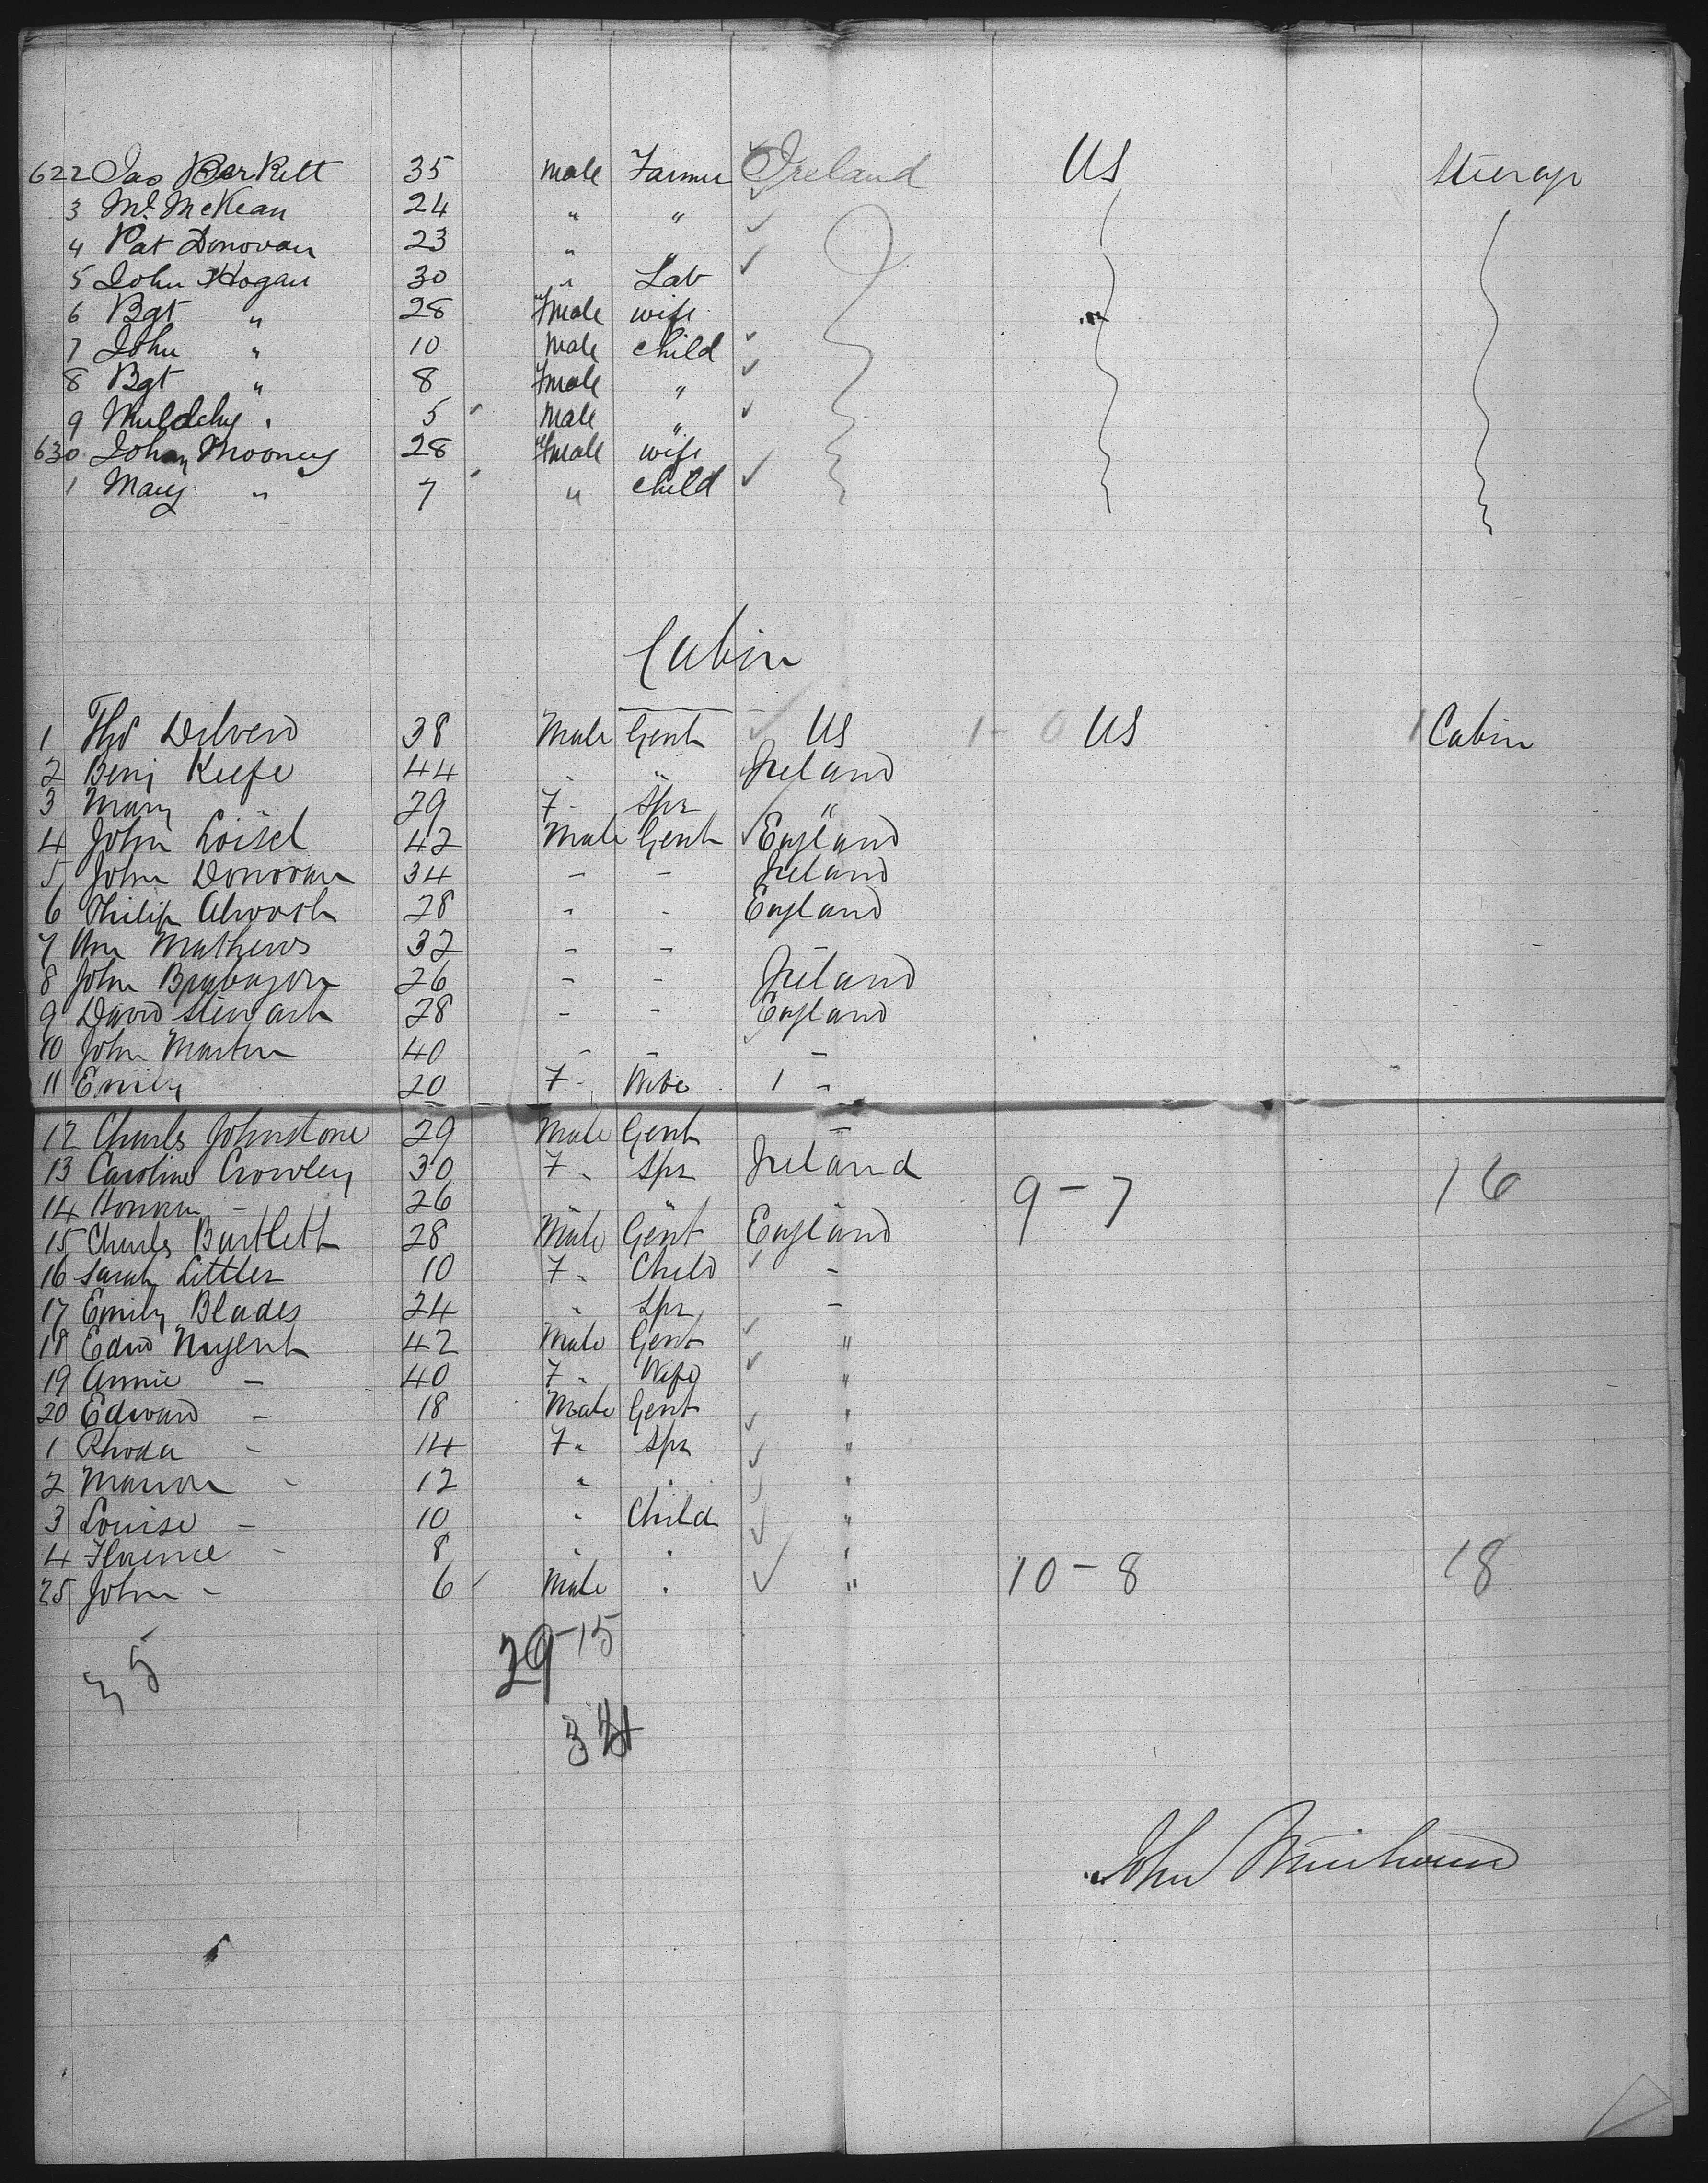 622 Jas Berkett 35 Male Farmer Ireland US Steerage
3 Ml McKean 24 " "
4 Pat Donovan 23 " "
5 John Hogan 30 " Lab
6 Bgt " 28 Fmale wife
7 John " 10 Male child
8 Bgt " 8 Fmale "
9 " 5 Male "
630 Mooney 28 Fmale wife
1 Mary " 7 " child
Cabin
1 Ths 38 Male Gent US 1 - 0 US 1 Cabin
2 Benj Keefe 44 " " Ireland
3 Mary 29 F - Spr "
4 John Loisel 42 Male Gent England
5 John Donovan 34 - - Ireland
6 Philip 28 - - England
7 Mathews 32 - - -
8 John Brabazon 26 - - Ireland
9 David Stewart 28 - - England
10 John Martin 40 - - -
11 Emily 20 F - Wife "
12 Charles Johnstone 29 Male Gent -
13 Caroline Crowley 30 F " Spr Ireland
14 - 26 " 9 - 7 16
15 Charles Bartlett 28 Male Gent England
16 Sarah Littler 10 F " Child -
17 Emily Blades 24 " Spr -
18 Edwd Nugent 42 Male Gent "
19 Annie - 40 F " Wife "
20 Edward - 18 Male Gent "
1 Rhoda - 14 F " Spr "
2 Marion - 12 " " "
3 Louise - 10 " Child "
4 Florence - 8 " " "
25 John - 6 Male " " 10 - 8 18
29-15
35
3
John